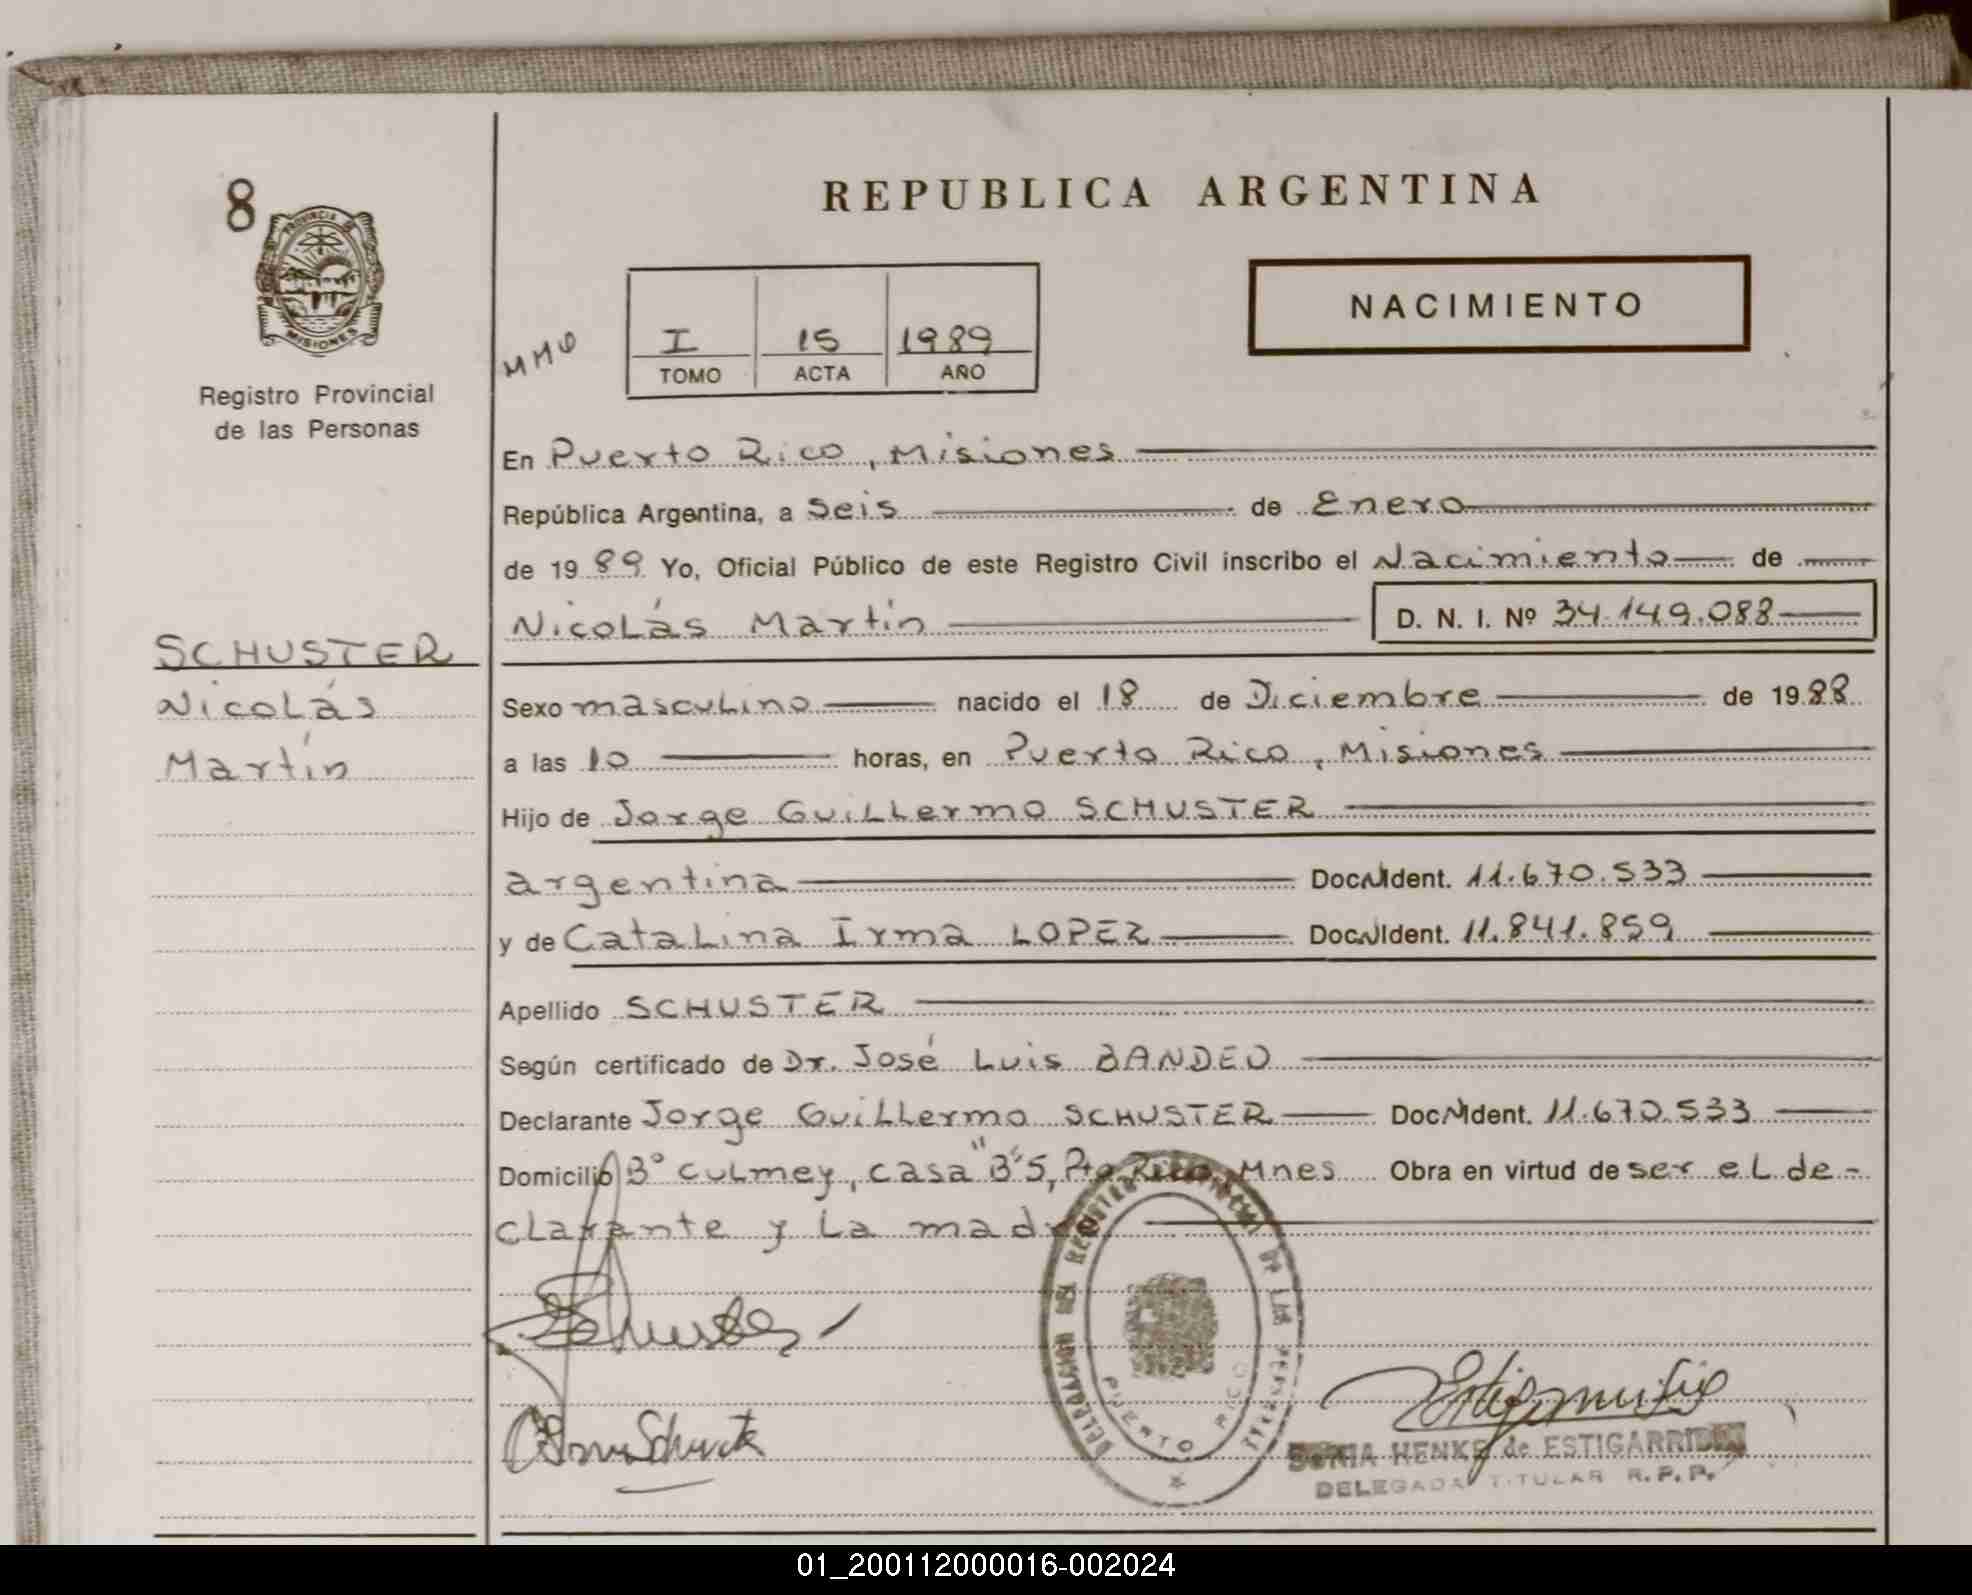 8
PROVINCIA DE
MISIONES
Registro Provincial
de las Personas
REPUBLICA ARGENTINA
NACIMIENTO
I 15 1989
TOMO ACTA AÑO
En Puerto Rico, Misiones
República Argentina, a seis de Enero
de 1989 Yo, Oficial Público de este Registro Civil inscribo el Nacimiento de
Nicolás Martín D. N. I. Nº 34.149.088
SCHUSTER
Nicolás
Martín
Sexo masculino nacido el 18 de Diciembre de 1988
a las 10 horas, en Puerto Rico, Misiones
Hijo de Jorge Guillermo SCHUSTER
argentina Doc. Ident. 11.670.533
y de Catalina Irma LOPEZ Doc. Ident. 11.841.859
Apellido SCHUSTER
Según certificado de Dr. José Luis BANDEO
Declarante Jorge Guillermo SCHUSTER Doc. Ident. 11.670.533
Domicilio Bº Culmey, casa "B" 5, Pto Rico, Mnes Obra en virtud de ser el de-
clarante y la madre
DELEGACION DEL REGISTRO PROVINCIAL DE LAS PERSONAS
PUERTO RICO
SONIA HENKE de ESTIGARRIBIA
DELEGADA TITULAR R. P. P.
01_200112000016-002024